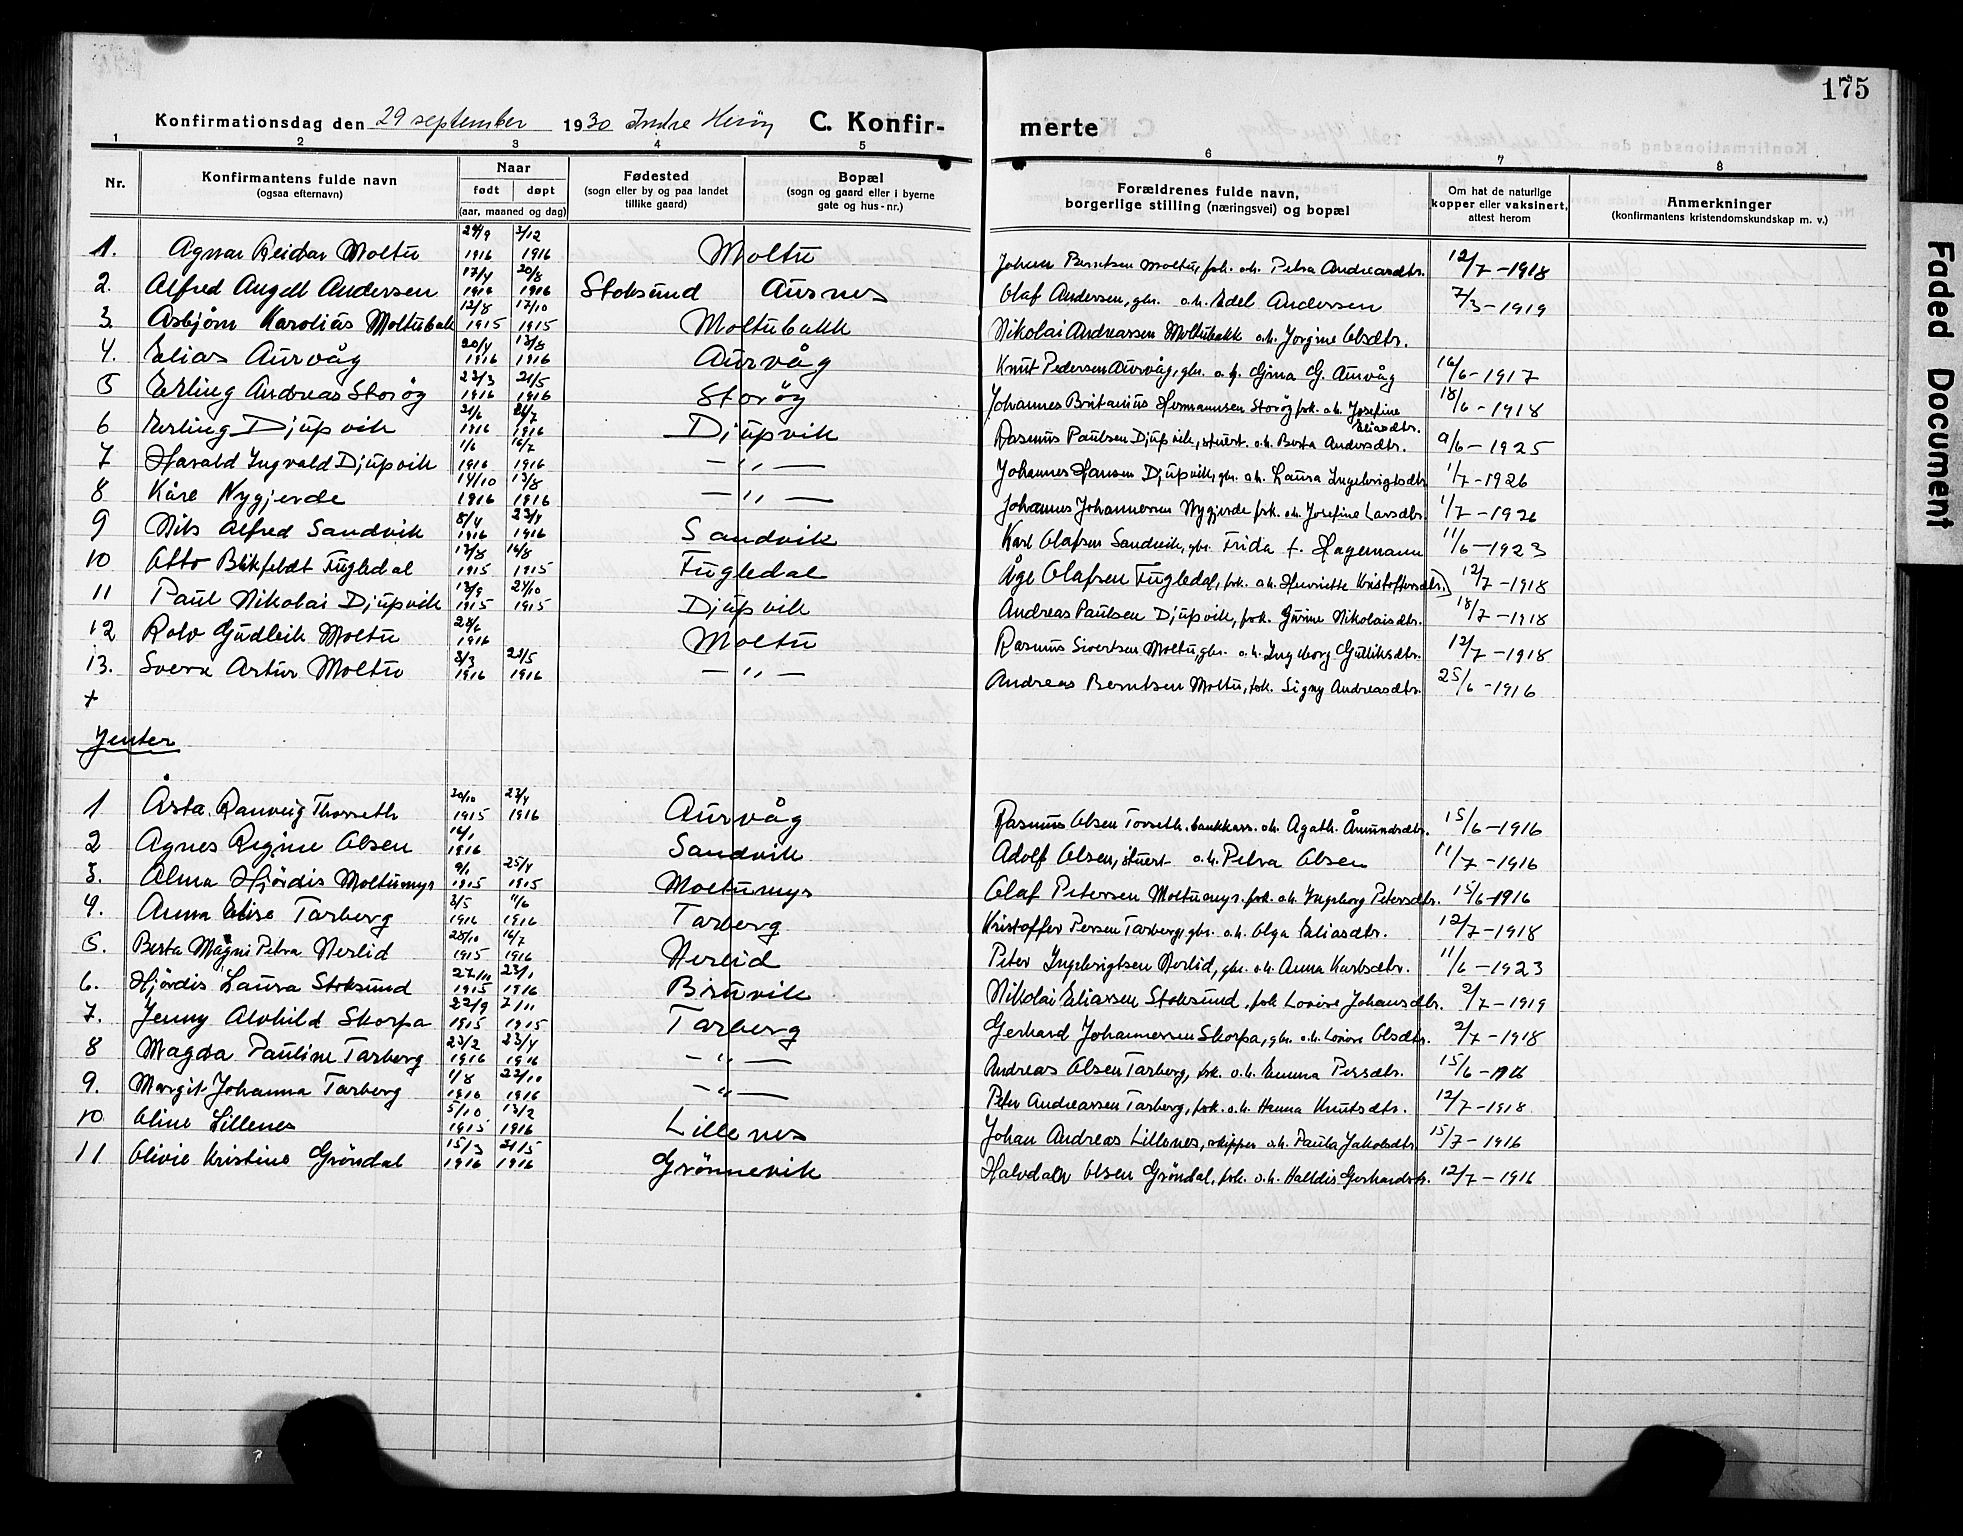 175
Konfirmationsdag den 29 september 1930 Indre Herøy C. Konfir- merte
1 2 3 4 5 6 7 8
Nr. Konfirmantens fulde navn (ogsaa efternavn) Naar født døpt (aar, maaned og dag) Fødested (sogn eller by og paa landet tillike gaard) Bopæl (sogn og gaard eller i byerne gate og hus-nr.) Forældrenes fulde navn, borgerlige stilling (næringsvei) og bopæl Om hat de naturlige kopper eller vaksinert, attest herom Anmerkninger (konfirmantens kristendomskundskap m. v.)
1. Agnar Reidar Moltu 1916 3/12 1916 Moltu Johan Berntsen Moltu, fsk. o.h. Petra Andreasdtr. 12/7-1918
2. Alfred Angell Andersen 17/4 1916 20/8 1916 Stoksund Aursnes Olaf Andersen, gbr. o.h. Edel Andersen 7/3-1919
3. Asbjørn Karolius Moltubak 12/8 1915 17/10 1915 Moltubakk Nikolai Andreassen Moltubakk o.h. Jorgine Olsdtr.
4. Elias Aurvåg 20/4 1916 13/8 1916 Aurvåg Knut Pedersen Aurvåg, gbr. o.h. Gina G. Aurvåg 16/6-1917
5 Erling Andreas Storøy 23/3 1916 21/5 1916 Storøy Johannes Britanius Hermannsen Storøy fsk. o.h. Josefine Eliasdtr. 18/6-1918
6 Erling Djupvik 21/6 1916 1916 Djupvik Rasmus Paulsen Djupvik, stuert. o.h. Berta Andersdtr. 9/6-1925
7 Harald Ingvald Djupvik 1/6 1916 16/7 1916 — " — Johannes Hansen Djupvik, gbr. o.h. Laura Ingebrigtsdtr 1/7-1926
8 Kåre Nygjerde 14/10 1916 13/8 1916 — " — Johannes Johannessen Nygjerde fsk. o.h. Josefine Larsdtr. 1/7-1926
9 Nils Alfred Sandvik 8/4 1916 23/4 1916 Sandvik Karl Olafsen Sandvik, gbr. Frida f. Hagemann 11/6-1923
10 Otto Blikfeldt Fugledal 13/8 1915 16/8 1915 Fugledal Åge Olafsen Fugledal, fsk. o.h. Henriette Kristoffersdtr. 12/7-1918
11 Paul Nikolai Djupvik 13/9 1915 24/10 1915 Djupvik Andreas Paulsen Djupvik, fsk. Gurine Nikolaisdtr. 18/7-1918
12 Rolv Gudleik Moltu 28/6 1916 Moltu Rasmus Sivertsen Moltu, gbr. o.h. Ingeborg Gulliksdtr. 12/7-1918
13. Sverre Artur Moltu 3/3 1916 28/5 1916 — " — Andreas Berntsen Moltu, fsk. Signy Andreasdtr. 25/6-1916
+
Jenter
1 Åsta Ranveig Thorseth 30/10 1915 23/4 1916 Aurvåg Rasmus Olsen Torseth. bankkass. o.h. Agath. Åmundsdtr. 15/6-1916
2 Agnes Regine Olsen 16/1 1916 Sandvik Adolf Olsen, stuert o.h. Petra Olsen 11/7-1916
3. Alma Hjørdis Moltumyr 9/1 1915 25/4 1915 Moltumyr Olaf Petersen Moltumyr. fsk o.h. Ingeborg Petersdtr. 15/6-1916
4. Anna Elise Tarberg 3/5 1916 11/6 1916 Tarberg Kristoffer Persen Tarberg, gbr. o.h. Olga Eliasdtr. 12/7-1918
5. Berta Magni Petra Nerlid 28/10 1915 16/7 1916 Nerlid Peter Ingebrigtsen Nerlid, gbr. o.h. Anna Karlsdtr. 11/6-1923
6. Hjørdis Laura Stoksund 27/11 1915 23/1 1916 Bruvik Nikolai Eliassen Stoksund, fsk Lovise Johansdtr. 2/7-1919
7. Jenny Alvhild Skorpa 22/9 1915 7/11 1915 Tarberg Gerhard Johannessen Skorpa, gbr. o.h. Lovise Olsdtr. 2/7-1918
8 Magda Pauline Tarberg 23/2 1916 23/4 1916 — " — Andreas Olsen Tarberg, fsk. o.h. Emma Persdtr. 15/6-1916
9. Margit Johanna Tarberg 1/8 1916 22/10 1916 — " — Peter Andreassen Tarberg, fsk. o.h. Hanna Knutsdtr. 12/7-1918
10. Oline Lillenes 5/10 1915 13/2 1916 Lillenes Johan Andreas Lillenes, skipper o.h. Paula Jakobsdtr 15/7-1916
11 Olivie Kristine Grøndal 15/3 1916 21/5 1916 Grønnevik Halvdan Olsen Grøndal, fsk. o.h. Halldis Gerhardsdtr. 12/7-1916
Faded Document